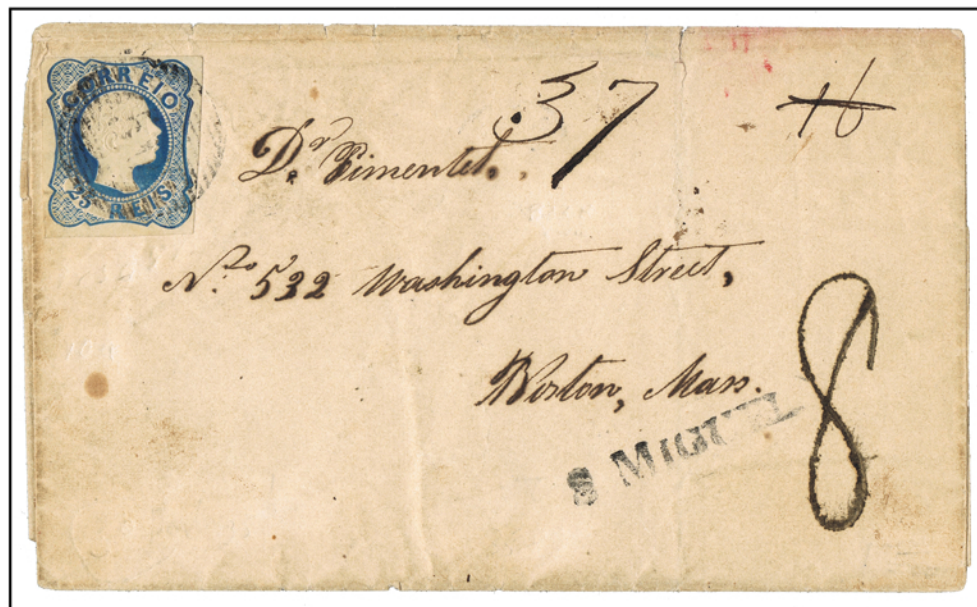 CORREIO
25 REIS
37
16
Dr. Pimentel,
No. 532 Washington Street,
Boston, Mass.
8
S MIGUEL